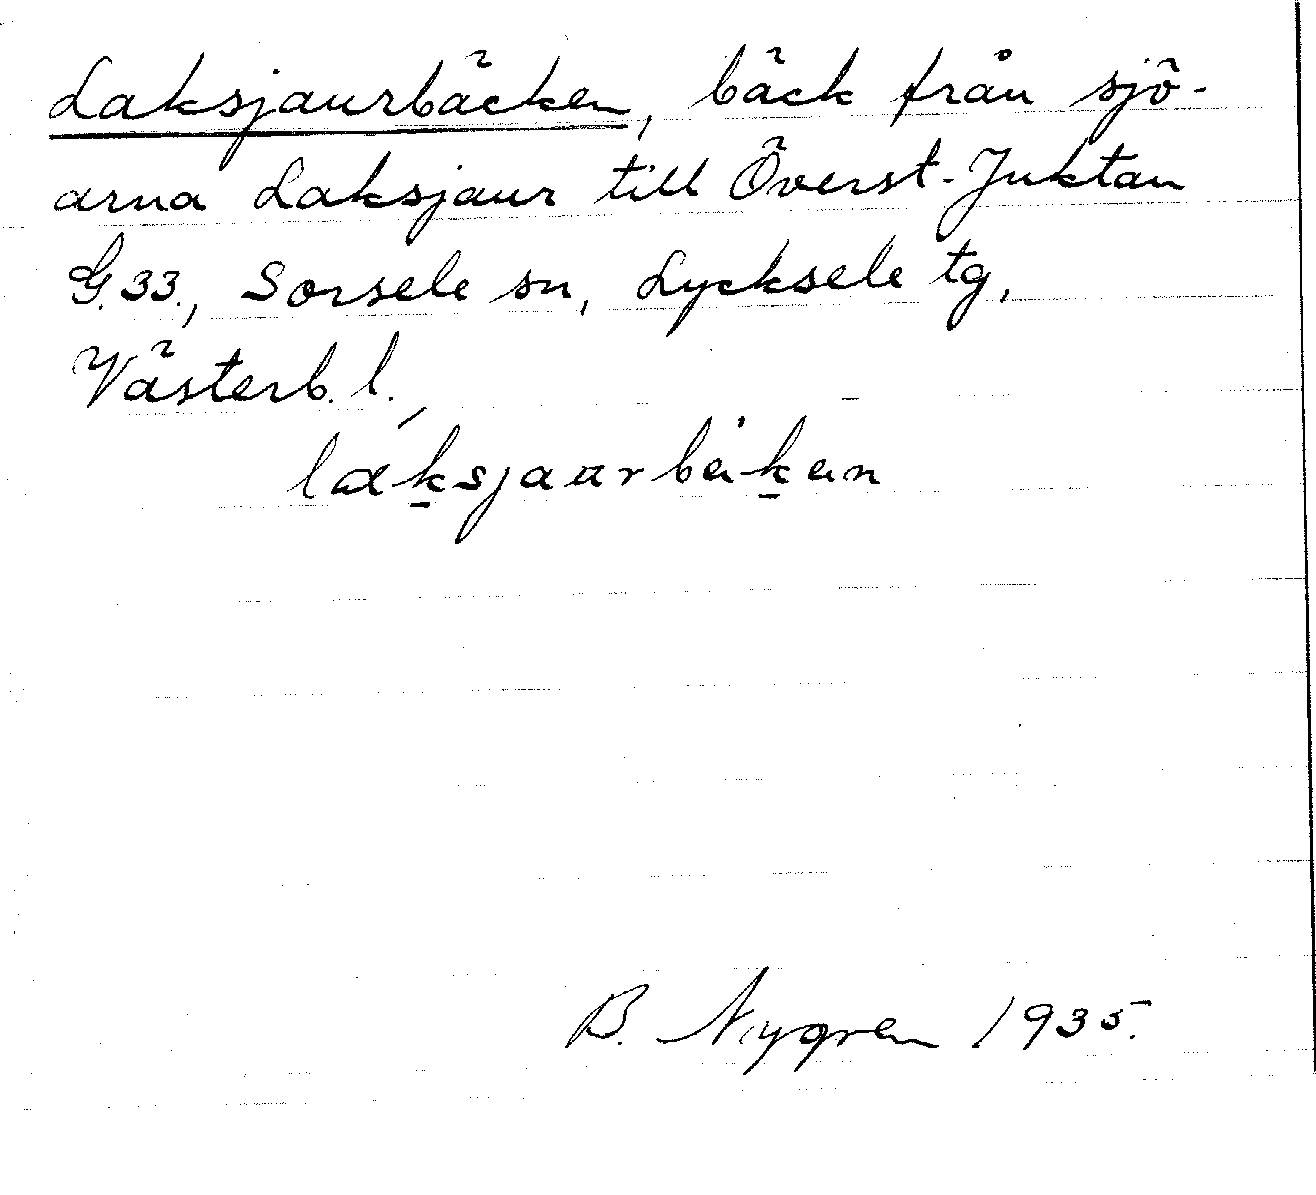 Laksjaurbäcken, bäck från sjö-
arna Laksjaur till Överst-Juktan
G.33., Sorsele sn, Lycksele tg,
Västerb. l.
B. Nygren 1935.